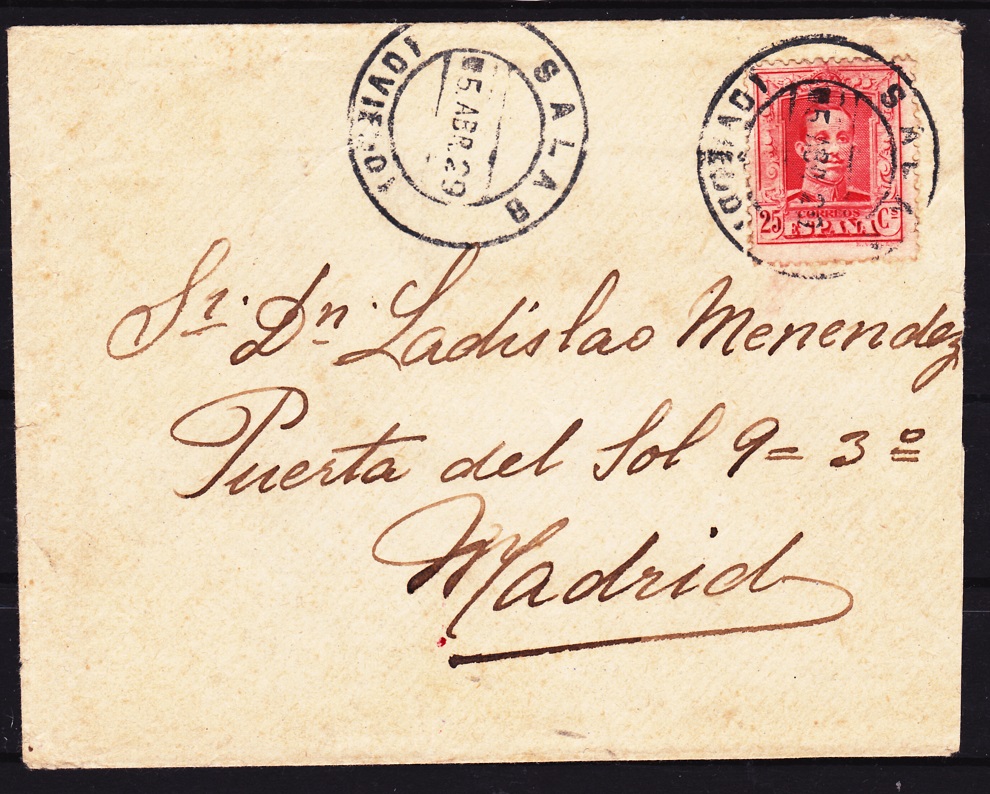 SALAS
(OVIEDO)
5 ABR. 29
25 CORREOS Cs
ESPAÑA
Sr. Dn. Ladislao Menendez
Puerta del Sol 9= 3º
Madrid